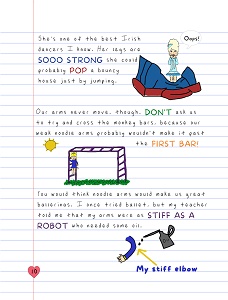 She's one of the best Irish
dancers I know. Her legs are
SOOO STRONG she could
probably POP a bouncy
house just by jumping.
Oops!
Our arms never move, though. DON'T ask us
to try and cross the monkey bars, because our
weak noodle arms probably wouldn't make it past
the FIRST BAR!
You would think noodle arms would make us great
ballerinas. I once tried ballet, but my teacher
told me that my arms were as STIFF AS A
ROBOT who needed some oil.
My stiff elbow
10